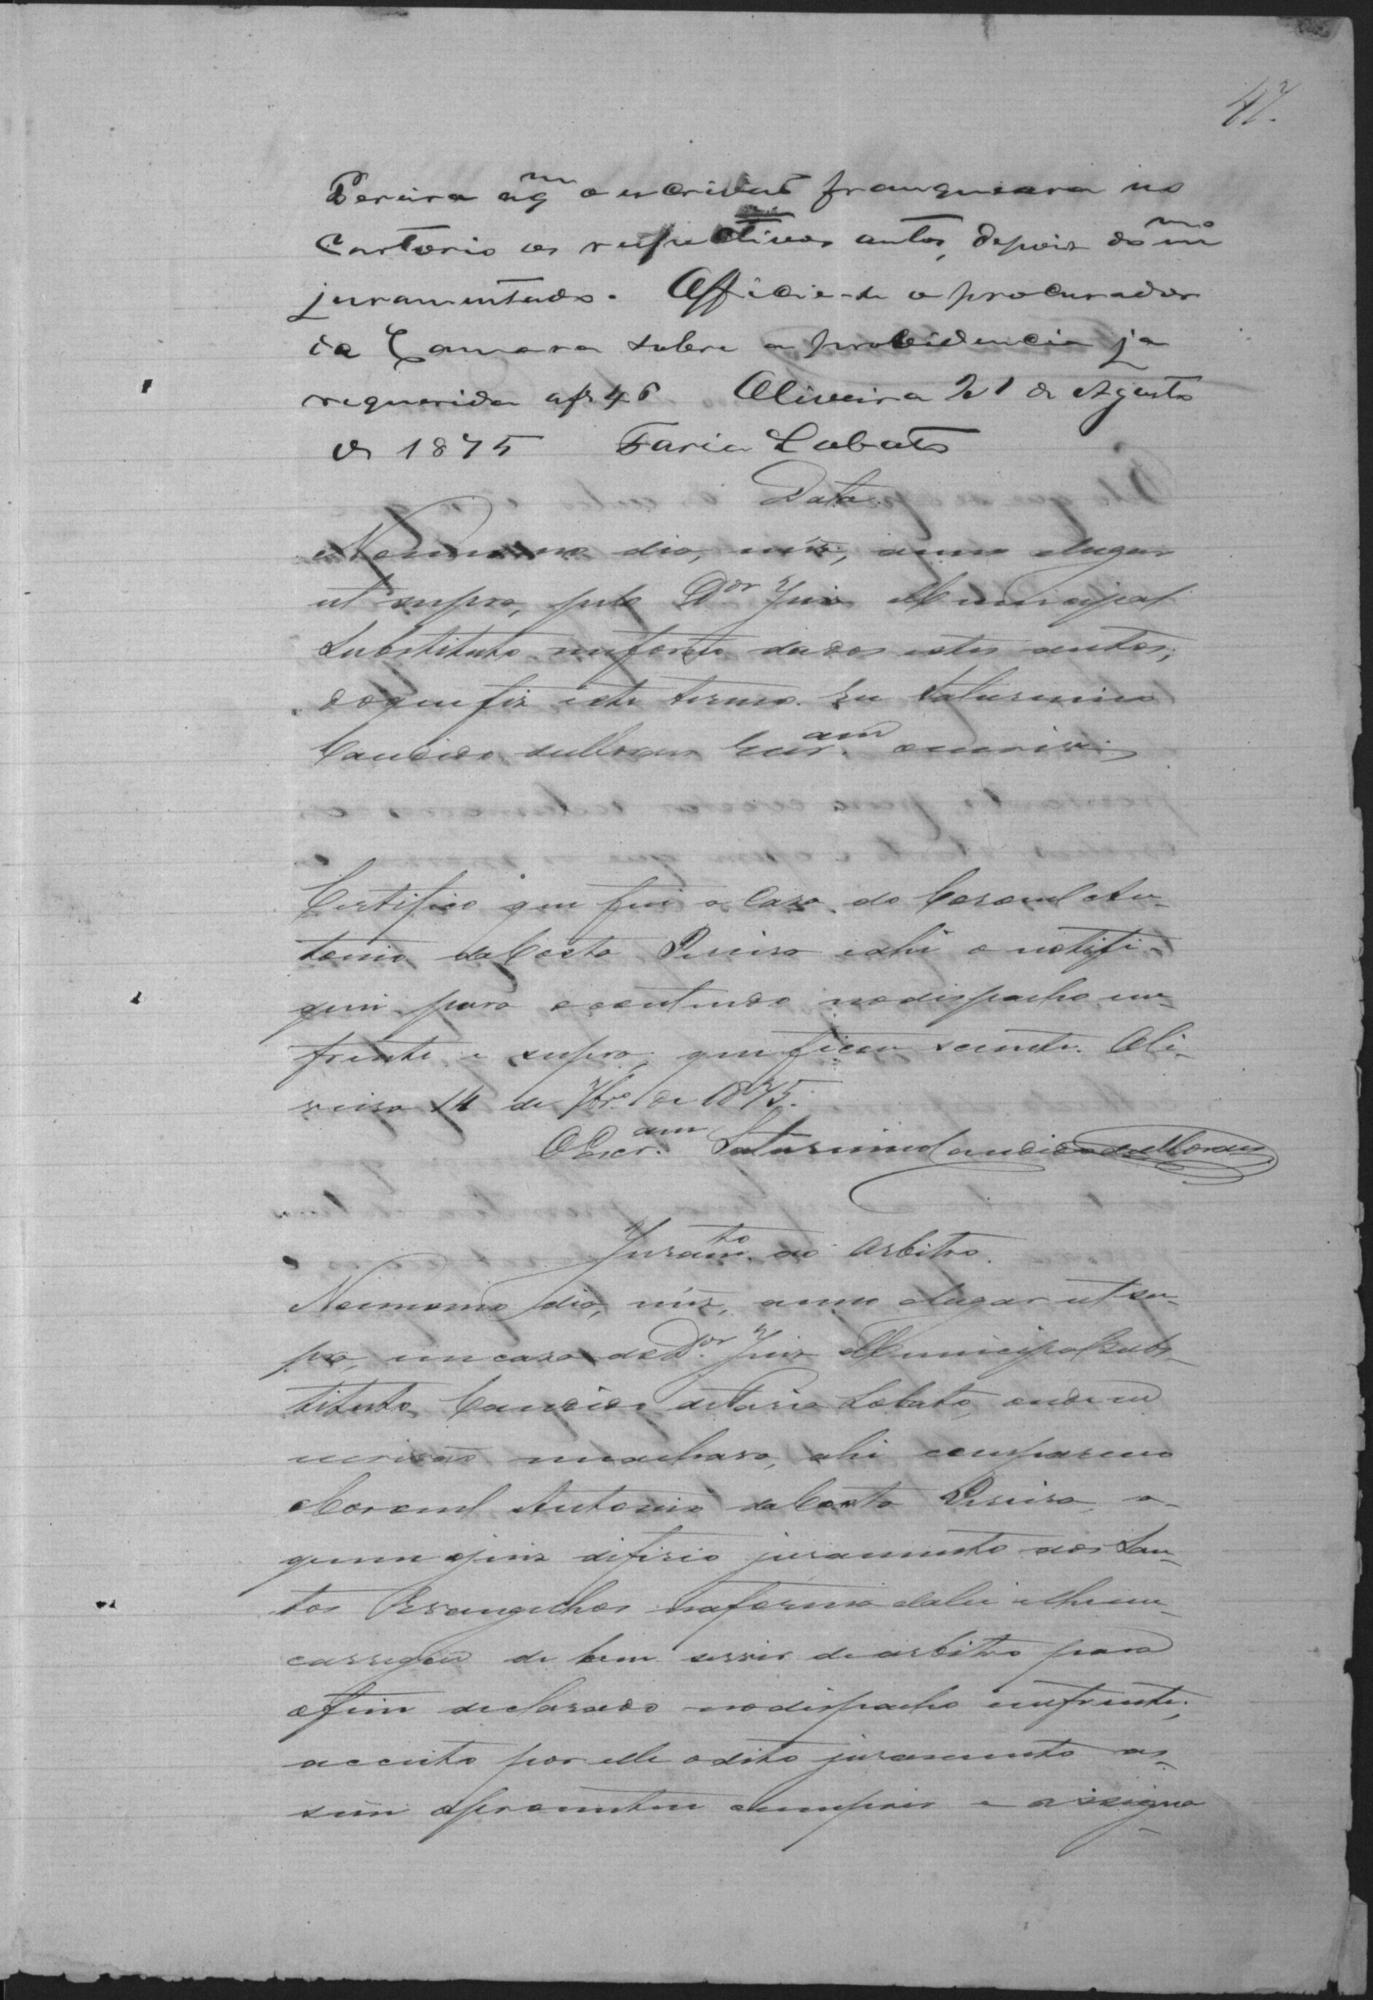 47.
Pereira a q.m o escrivão franqueara no
Cartorio os respectivos autos, depois do m.mo
juramentado. Officie-se o procurador
da Camara sobre a probidencia ja
requerida a f. 46 Oliveira 21 de Agosto
de 1875 Faria Lobato
Data
No mesmo dia, mêz, anno elugar
ut supra, pelo D.or Juis Municipal
Substituto me forão dados estes autos,
do que fiz este termo. Eu Saturnino
Candido de Moraes Escr.am o escrivi
Certifico que fui a Casa do Coronel An-
tonio da Costa Pereira eahi o notifi-
quei para o contiudo no dispacho em
frente e supra, que ficou sciente. Oli-
veira 14 de 7br.o de 1875.
O Escr.am Saturnino Candido de Moraes
Juram.to ao Arbitro.
No mesmo dia, mêz, anno elugar ut su-
pra, em casa do D.or Juiz Municipal Subs-
tituto Candido de Faria Lobato, onde eu
escrivão me achava, ahi compareceo
o Coronel Antonio da Costa Pereira, a
quem o juiz difirio juramento aos San-
tos Evangelhos na forma da lei e lhe en-
carregou de bem servir de arbitro para
o fim declarado no dispacho em frente,
acceito por elle o dito juramento as-
sim o prometeu cumprir e assigna